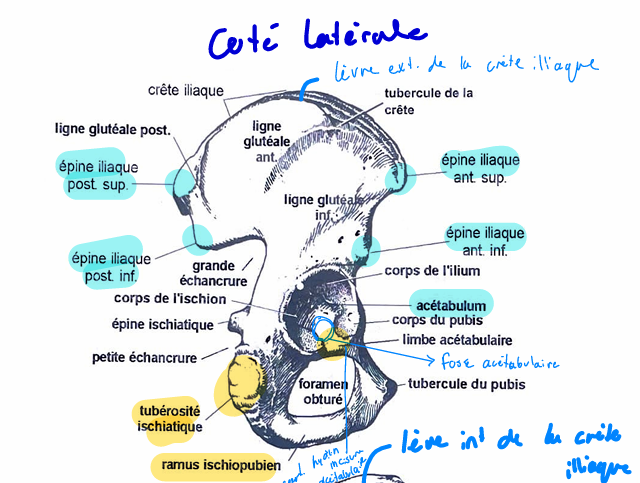 Coté latérale
lèvre ext. de la crête iliaque
crête iliaque
tubercule de la
crête
ligne glutéale post.
ligne
glutéale
ant.
épine iliaque
post. sup.
épine iliaque
ant. sup.
ligne glutéale
inf.
épine iliaque
ant. inf.
épine iliaque
post. inf.
grande
échancrure
corps de l'ilium
corps de l'ischion
acétabulum
épine ischiatique
corps du pubis
limbe acétabulaire
petite échancrure
fose acétabulaire
foramen
obturé
tubercule du pubis
tubérosité
ischiatique
ramus ischiopubien
lève int de la crête
illiaque